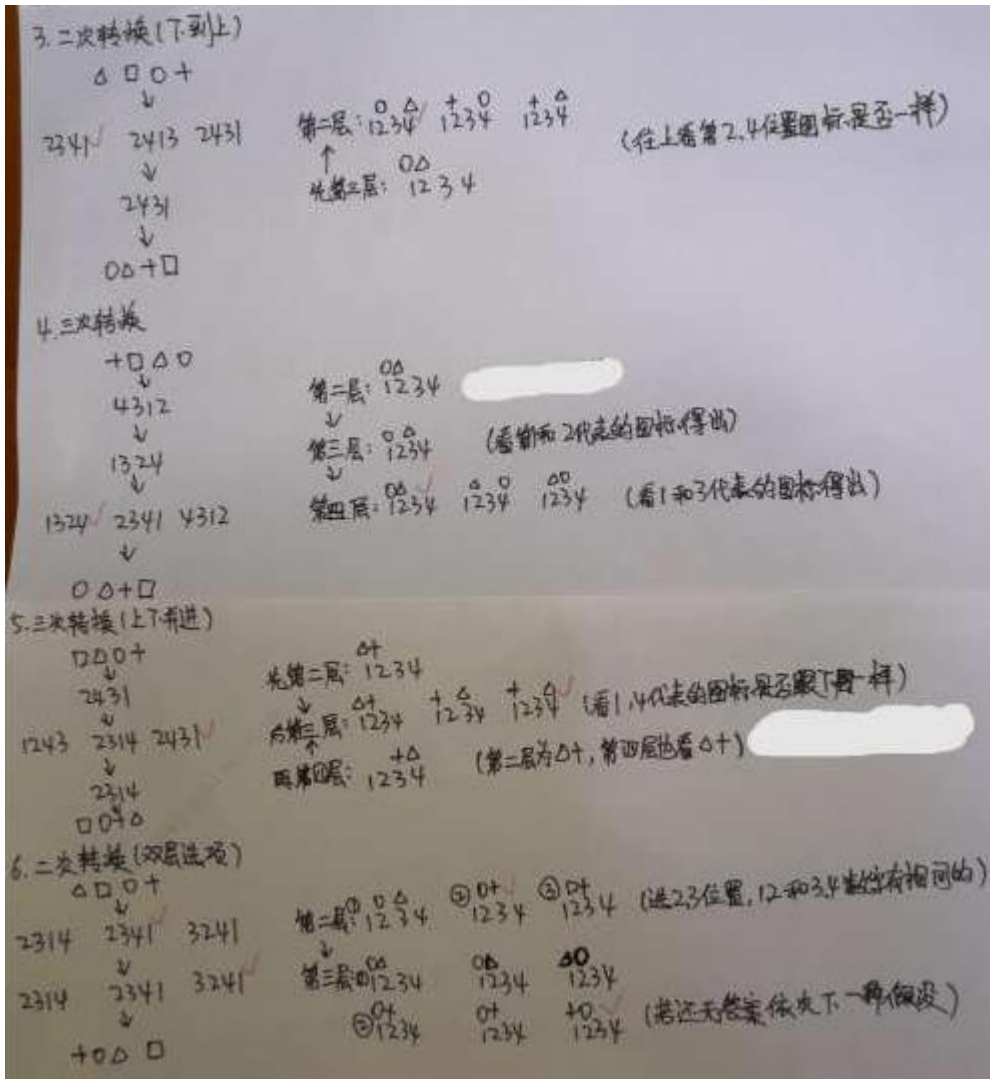 3.二次转换(下到上)
△ □ ○ +
↓
2341✓ 2413 2431
↓
2431
↓
○△+□
第二层: ○ △ + ○ + △
1234✓ 1234 1234
(往上看第2,4位置图标是否一样)
↑
先第三层: ○△
1234
4.三次转换
+□△○
↓
4312
↓
1324
↓
1324✓ 2341 4312
↓
○△+□
第二层: ○△
1234
↓
第三层: ○ △
1234
(看第和2代表的图标得出)
↓
第四层: ○△ △ ○ △○
1234✓ 1234 1234
(看1和3代表的图标得出)
5.三次转换(上下并进)
□△○+
↓
2431
↓
1243 2314 2431✓
↓
2314
□○+△
先第二层: △+
1234
↓
后第三层: △+ + △ + △
1234 1234 1234✓
(看1,4代表的图标是否跟下一样)
↑
再第四层: +△
1234
(第二层为△+,第四层也看△+)
6.二次转换(双层选项)
△□○+
↓
2314 2341✓ 3241
↓
2314 2341 3241✓
↓
+○△ □
第二层: ① ○ △ ② ○+ ③ □+
1234 1234✓ 1234
(选23位置,12和3,4
有相同的)
↓
第三层: ① ○△ ○△ △○
1234 1234 1234
② ○+ ○+ +○
1234 1234 1234✓
(若还无答案依次下一种假设)